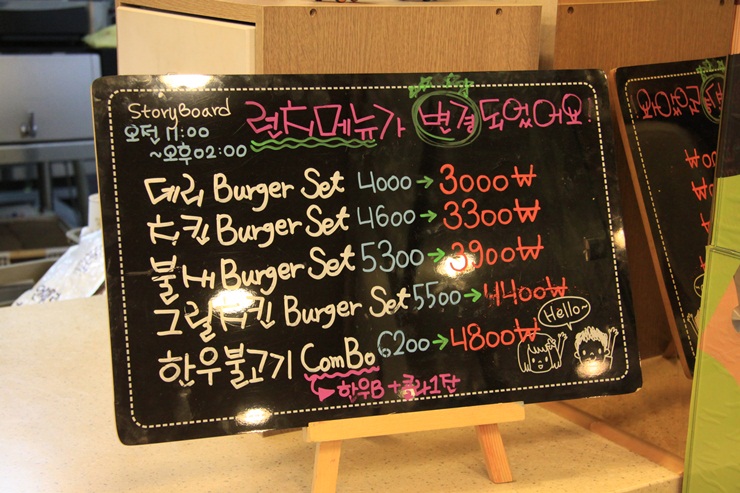 StoryBoard
런치메뉴가 변경되었어요!
오전 11:00
~오후 02:00
데리 Burger Set 4000→3000₩
치킨 Burger Set 4600→3300₩
불새 Burger Set 5300→3900₩
그릴치킨 Burger Set 5500→4400₩
한우불고기 ComBo 6200→4800₩
Hello~
한우B +콜라1잔